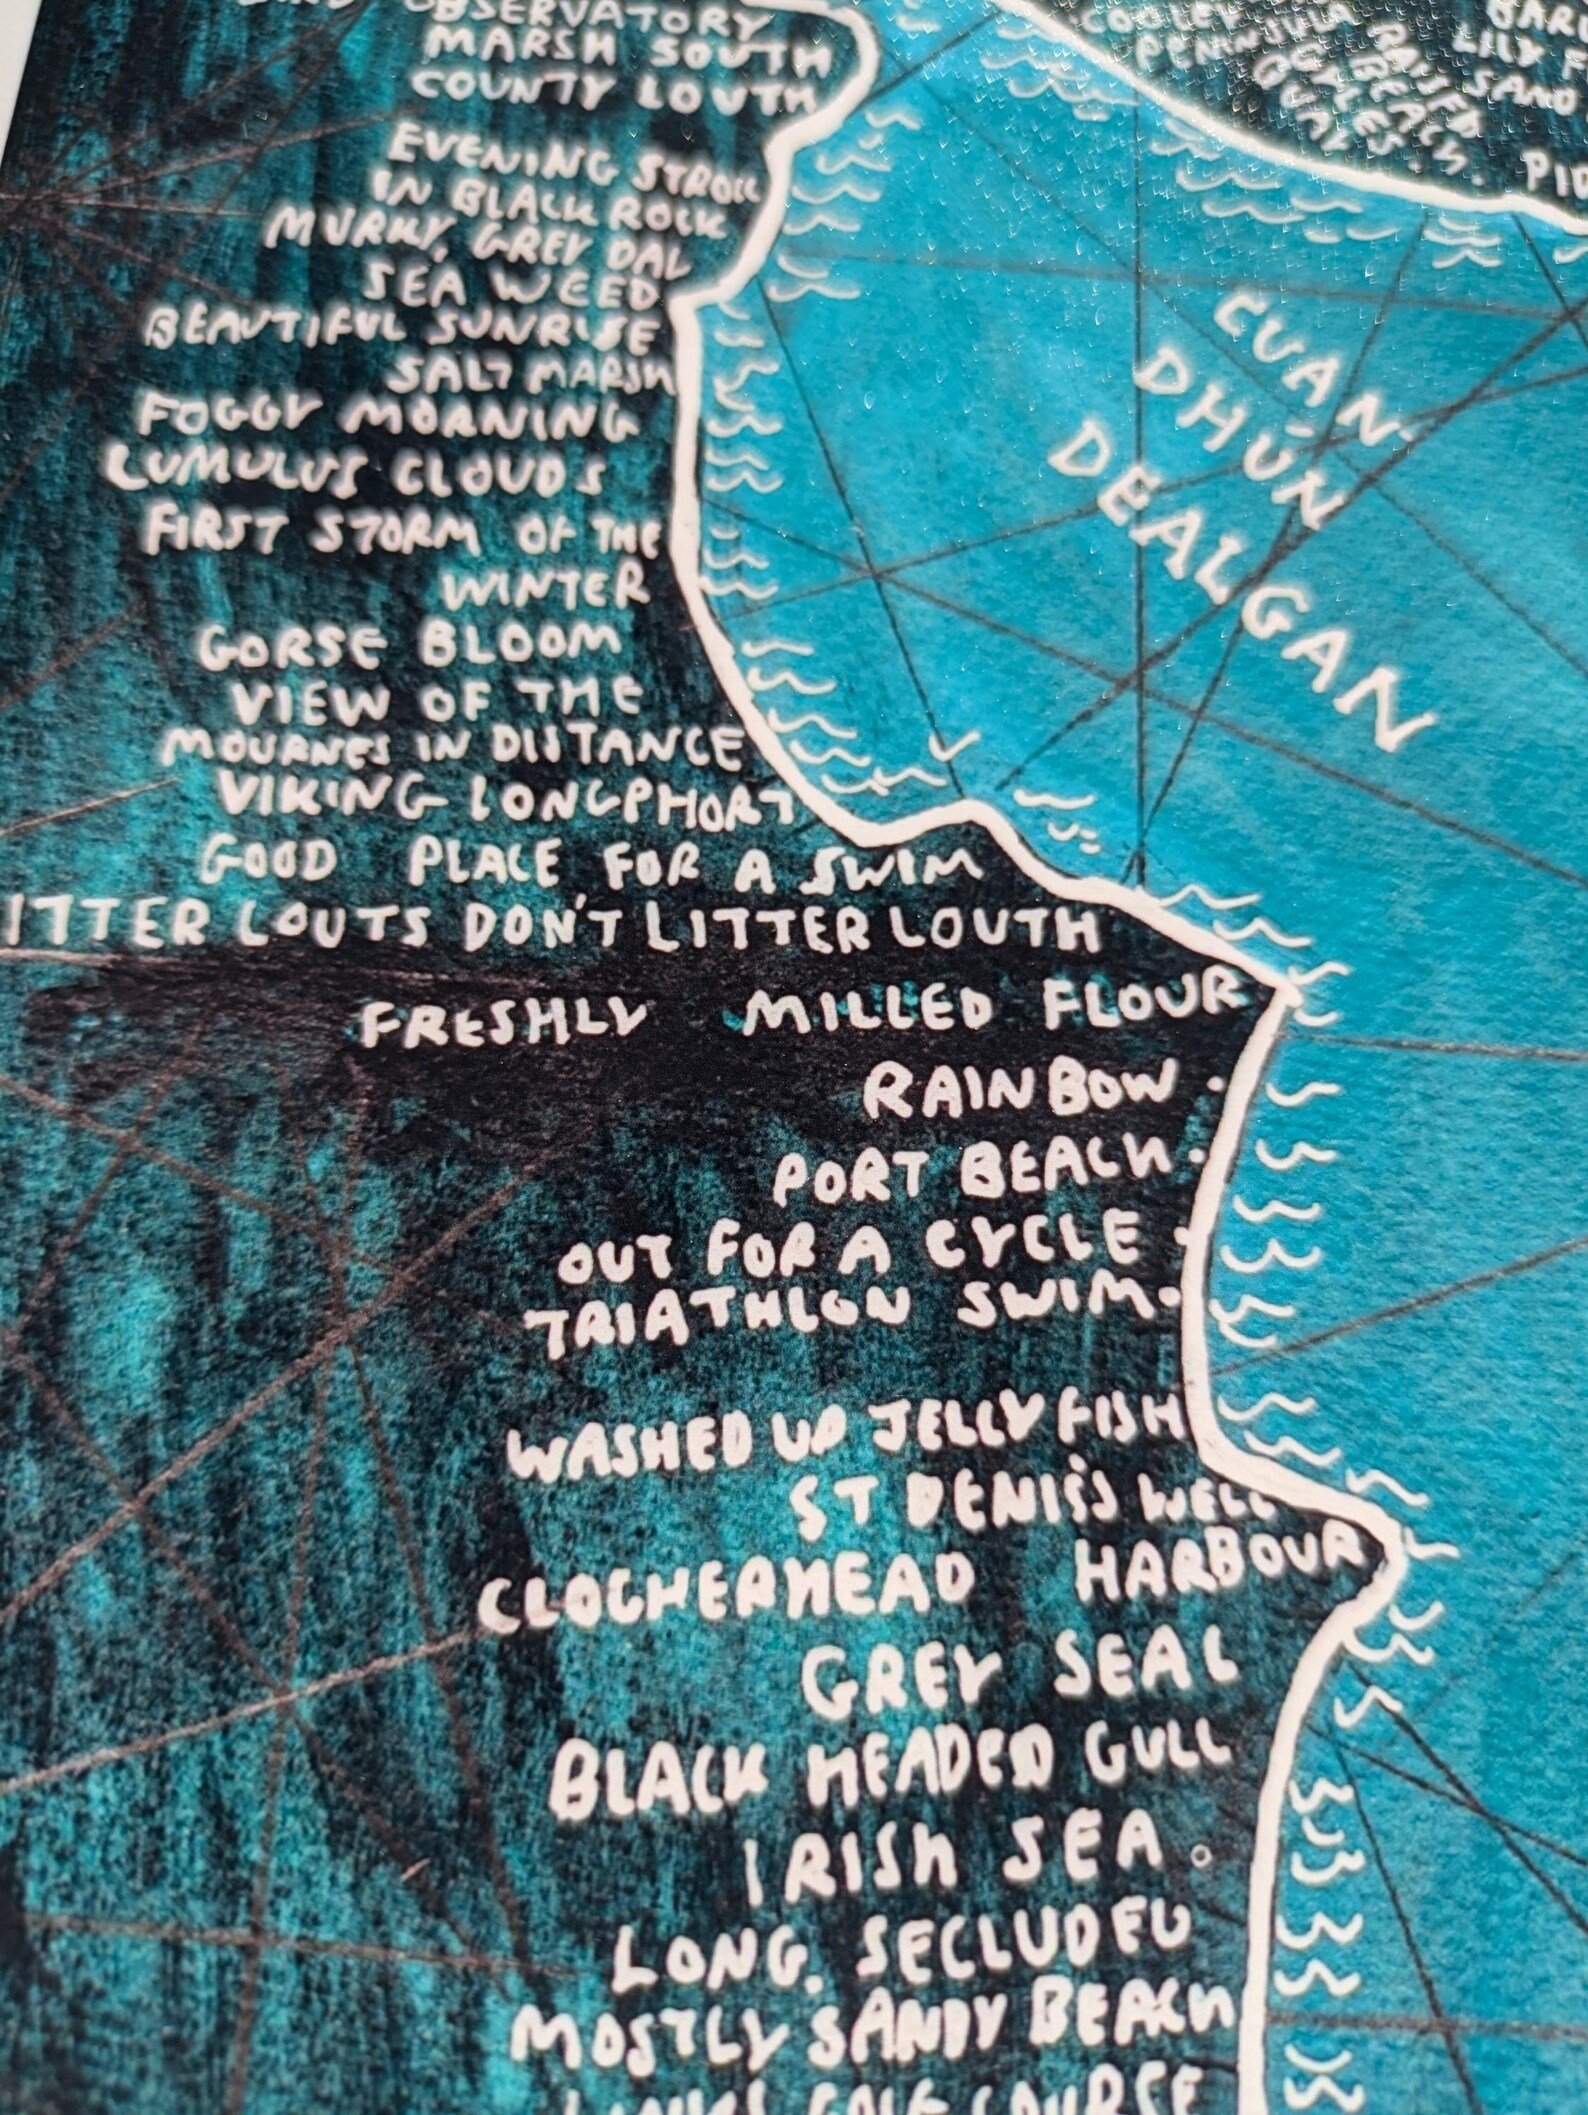 OBSERVATORY
MARSH SOUTH
COUNTY LOUTH
EVENING STROLL
IN BLACK ROCK
MURKY, GREY DAY
SEA WEED
BEAUTIFUL SUNRISE
SALT MARSH
FOGGY MORNING
CUMULUS CLOUDS
FIRST STORM OF THE
WINTER
GORSE BLOOM
VIEW OF THE
MOURNES IN DISTANCE
VIKING LONGPHORT
GOOD PLACE FOR A SWIM
ITTER LOUTS DON'T LITTER LOUTH
FRESHLY MILLED FLOUR
RAINBOW.
PORT BEACH.
OUT FOR A CYCLE.
TRIATHLON SWIM.
WASHED UP JELLY FISH
ST DENIS'S WELL
CLOGHERHEAD HARBOUR
GREY SEAL
BLACK HEADED GULL
IRISH SEA.
LONG, SECLUDED
MOSTLY SANDY BEACH
LINKS GOLF COURSE
CUAN
DHÚN
DEALGAN
COOLEY
PENINSULA
RAISED
BEACH.
LILY
SAND